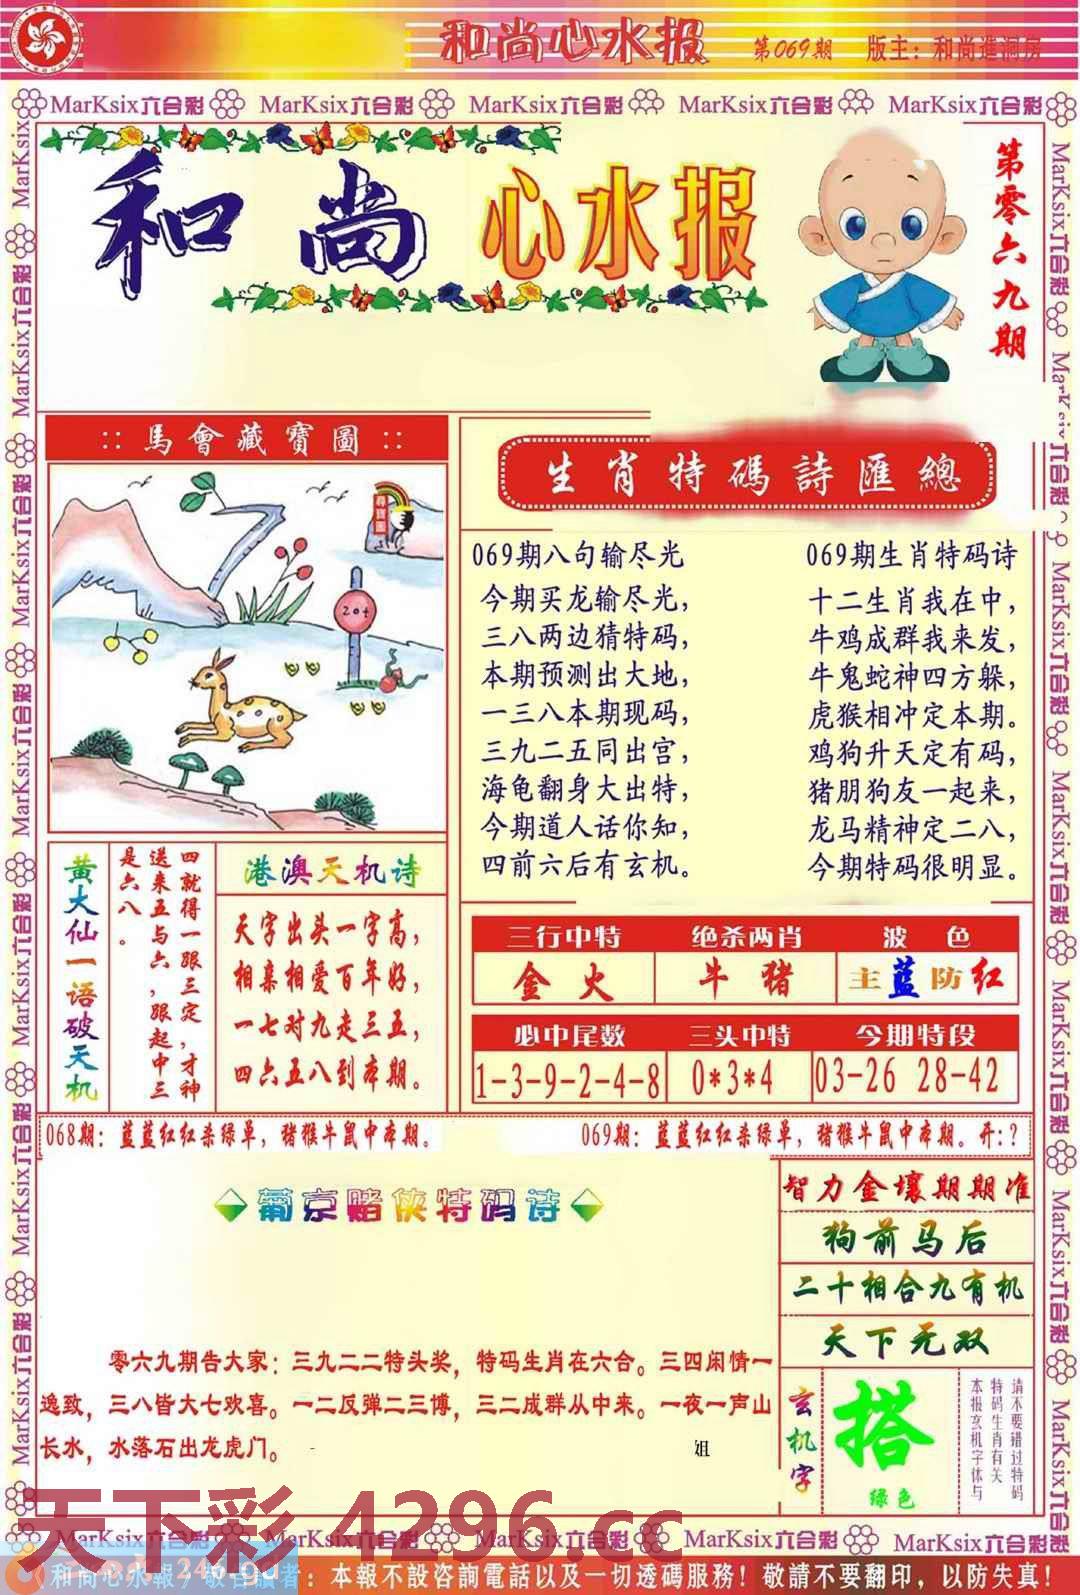 和尚心水报 第069期 版主：和尚進洞房
MarKsix六合彩 MarKsix六合彩 MarKsix六合彩 MarKsix六合彩 MarKsix六合彩
和尚心水报
第零六九期
:: 馬會藏寶圖 ::
尋寶圖
20t
生肖特碼詩匯總
069期八句输尽光
今期买龙输尽光，
三八两边猜特码，
本期预测出大地，
一三八本期现码，
三九二五同出宫，
海龟翻身大出特，
今期道人话你知，
四前六后有玄机。
069期生肖特码诗
十二生肖我在中，
牛鸡成群我来发，
牛鬼蛇神四方躲，
虎猴相冲定本期。
鸡狗升天定有码，
猪朋狗友一起来，
龙马精神定二八，
今期特码很明显。
黄大仙一语破天机
四就得一跟三定，才神
送来五与六，跟起中三
是六八。
港澳天机诗
天字出头一字高，
相亲相爱百年好，
一七对九走三五，
四六五八到本期。
三行中特 绝杀两肖 波色
金火 牛猪 主蓝防红
必中尾数 三头中特 今期特段
1-3-9-2-4-8 0*3*4 03-26 28-42
068期：蓝蓝红红杀绿单，猪猴牛鼠中本期。
069期：蓝蓝红红杀绿单，猪猴牛鼠中本期。开:？
葡京赌侠特码诗
零六九期告大家：三九二二特头奖，特码生肖在六合。三四闲情一
逸致，三八皆大七欢喜。一二反弹二三博，三二成群从中来。一夜一声山
长水，水落石出龙虎门。
姐
智力金壤期期准
狗前马后
二十相合九有机
天下无双
玄机字
搭
绿色
请不要错过特码
特码生肖有关
本报玄机字体与
天下彩 4296.cc
MarKsix六合彩 MarKsix六合彩 MarKsix六合彩 MarKsix六合彩 MarKsix六合彩
和尚心水報 敬告讀者：本報不設咨詢電話以及一切透碼服務！敬請不要翻印，以防失真！